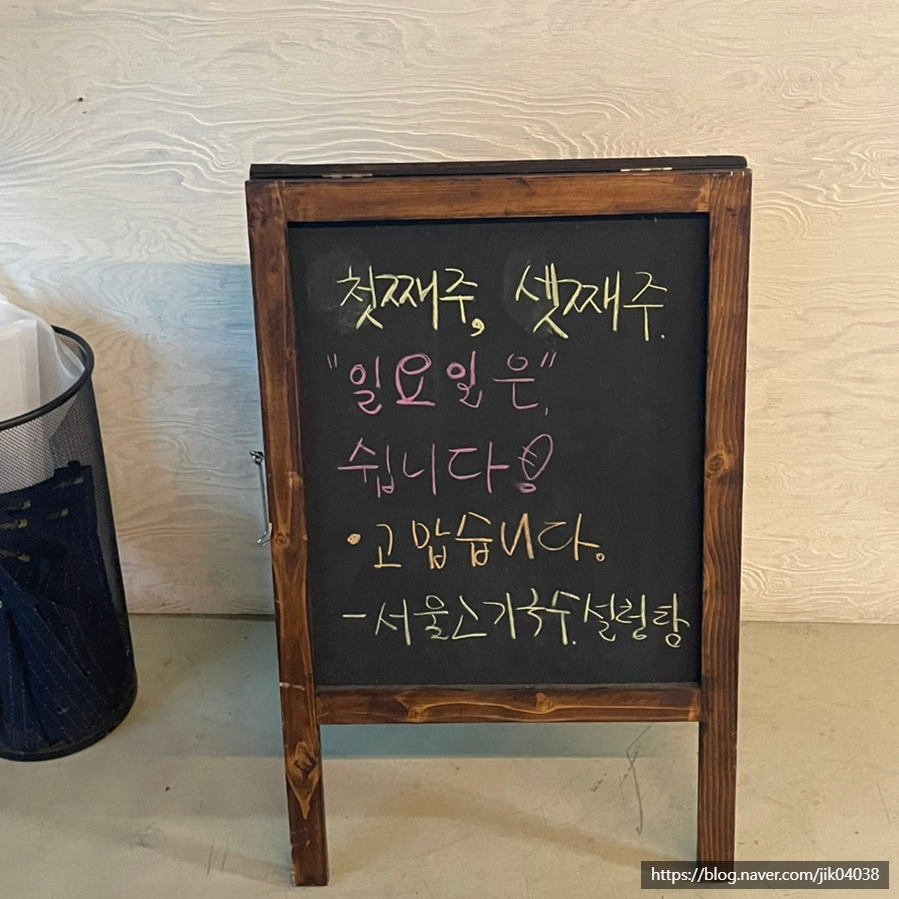 첫째주, 셋째주.
"일요일은"
쉽니다!
• 고맙습니다.
- 서울소기국수. 설렁탕
https://blog.naver.com/jik04038